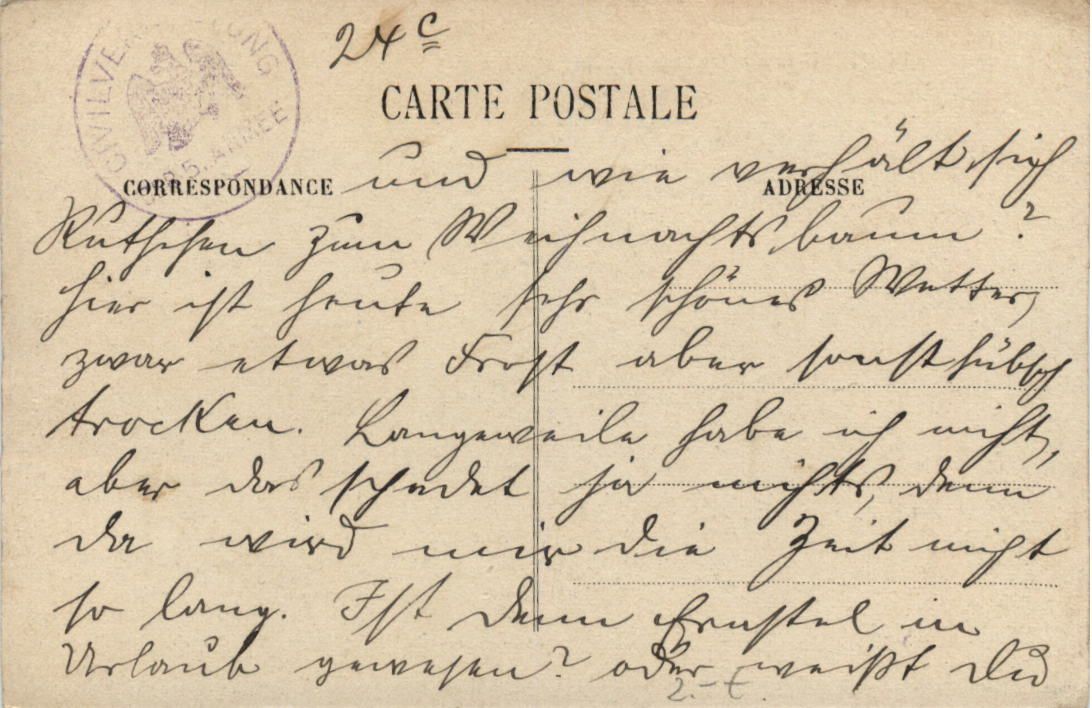 24 c
CIVILVERWALTUNG
5. ARMEE
CARTE POSTALE
CORRESPONDANCE
ADRESSE
und wie verhält sich
Ruthchen zum Weihnachtsbaum?
hier ist heute sehr schönes Wetter,
zwar etwas Frost aber sonst hübsch
trocken. Langeweile habe ich nicht,
aber das schadet ja nichts, denn
da wird mir die Zeit nicht
so lang. Ist denn Ernstel in
Urlaub gewesen? oder weißt Du
2.-